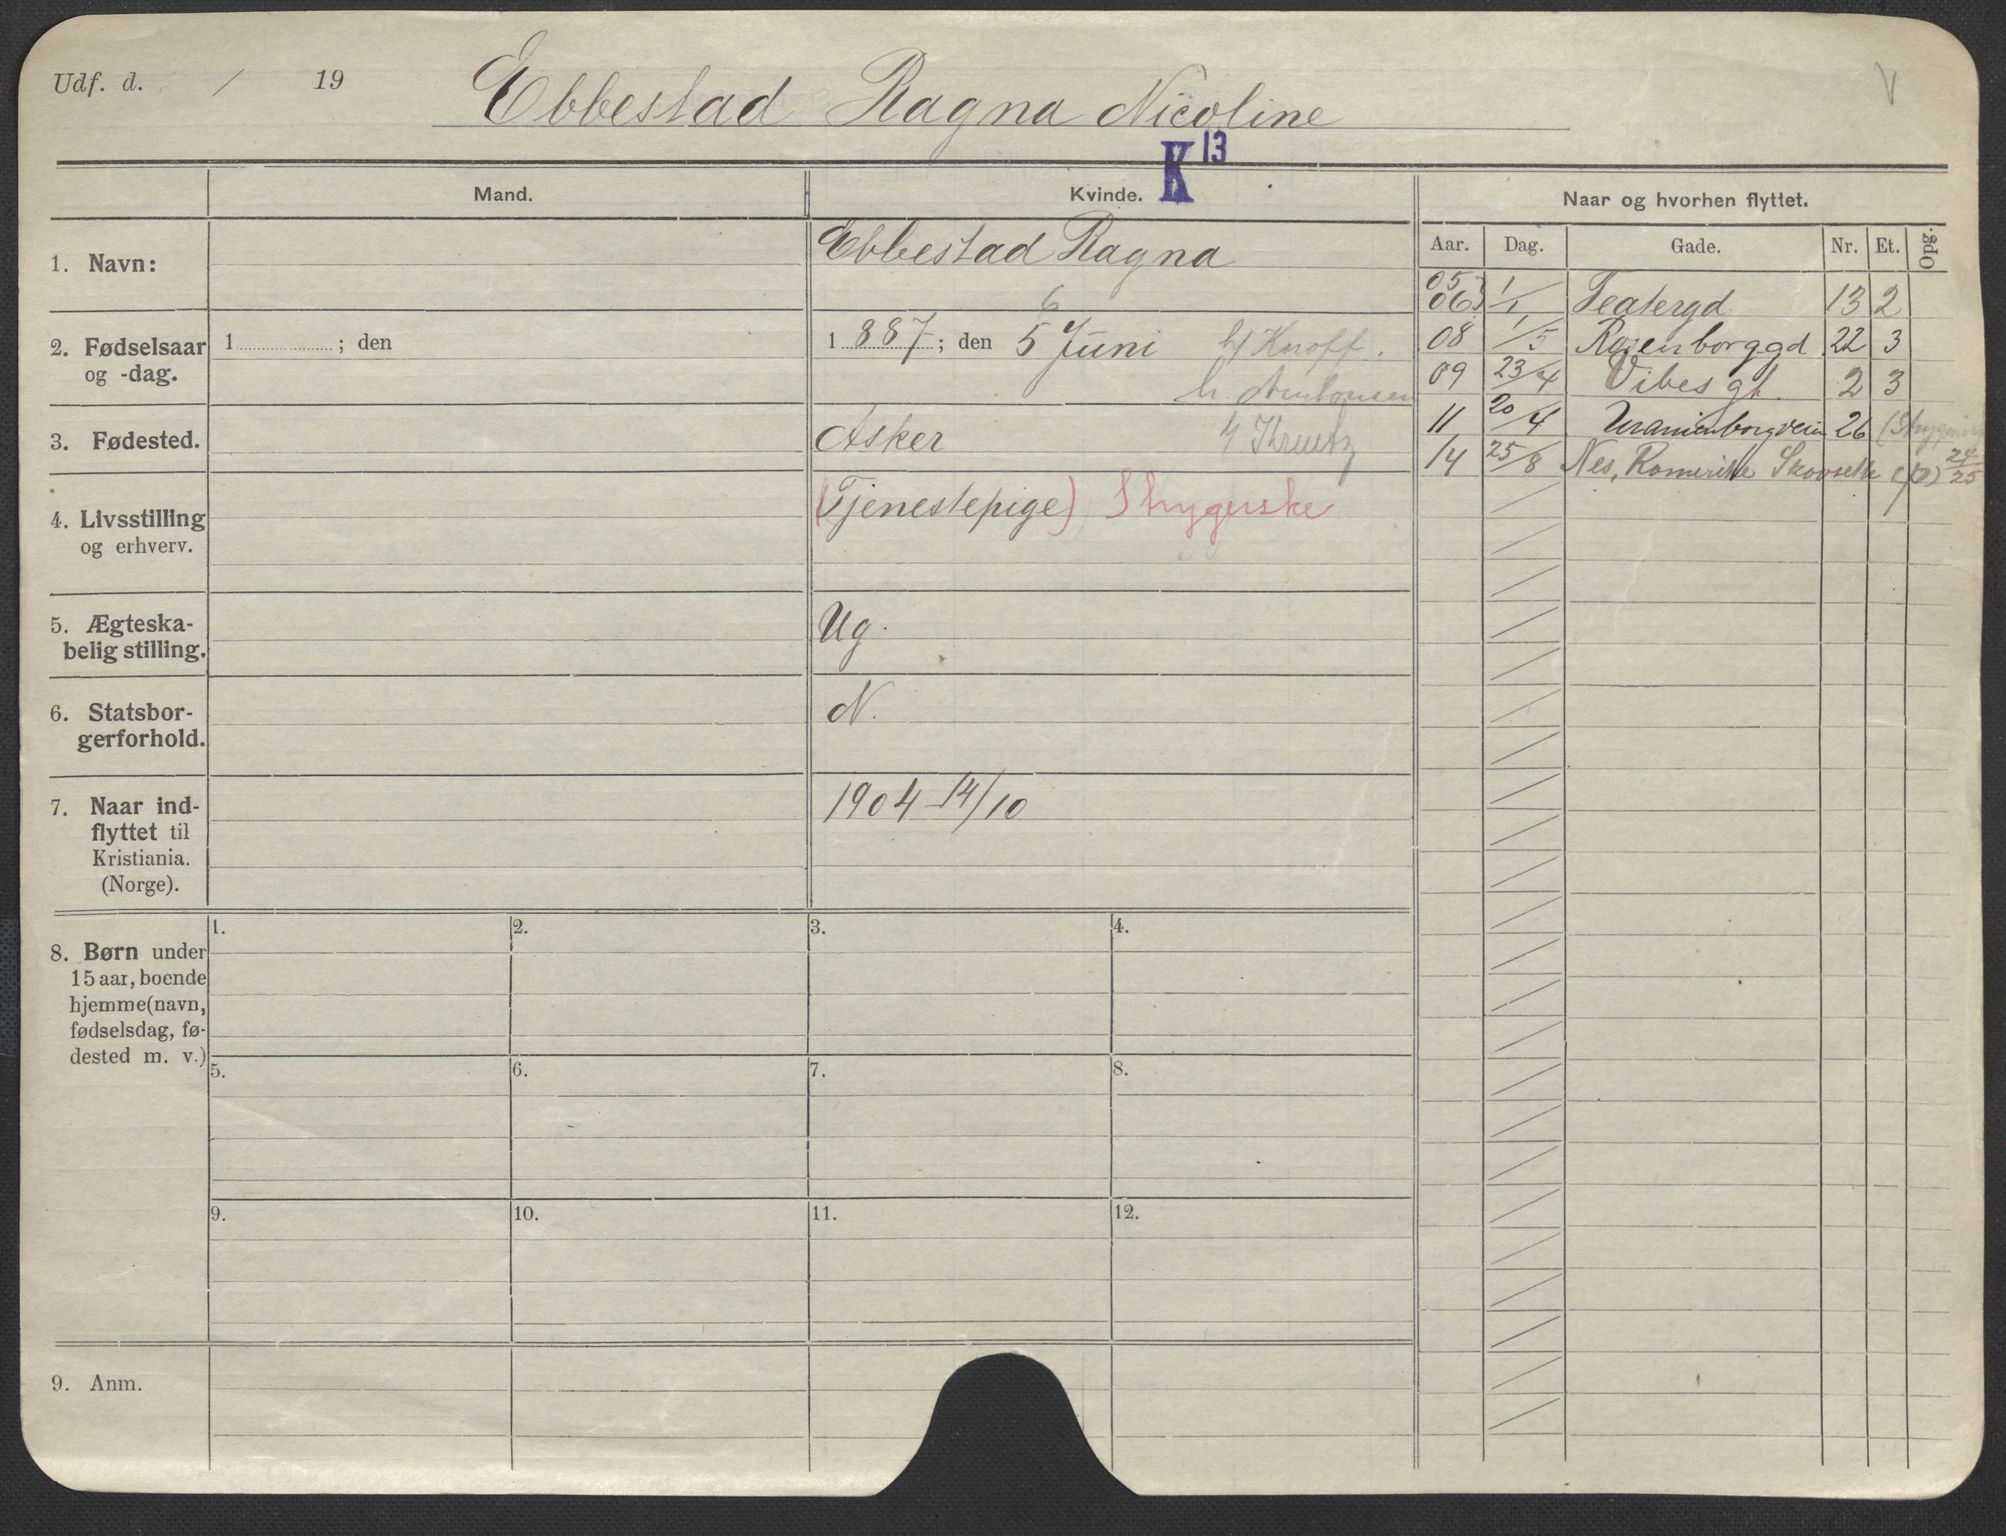 Udf. d. / 19
Ebbestad Ragna Nicoline
V
K 13
Mand.
Kvinde.
Naar og hvorhen flyttet.
Aar. Dag. Gade. Nr. Et. Opg.
1. Navn:
Ebbestad Ragna
2. Fødselsaar
og -dag.
1 ; den
6
1 887 ; den 5 Juni
h/ Knoff.
3. Fødested.
Asker
4. Livsstilling
og erhverv.
(Tjenestepige) Strygerske
5. Ægteska-
belig stilling.
Ug.
6. Statsbor-
gerforhold.
N.
7. Naar ind-
flyttet til
Kristiania.
(Norge).
1904 14/10
05
06 1/1 Teatergd 13 2
08 1/5 Rosenborggd 22 3
09 23/4 Vibesgt. 2 3
11 20/4 Uranienborgveien 26
14 25/8 Nes, Romerike 24/25
8. Børn under
15 aar, boende
hjemme (navn,
fødselsdag, fø-
dested m. v.)
1. 2. 3. 4.
5. 6. 7. 8.
9. 10. 11. 12.
9. Anm.